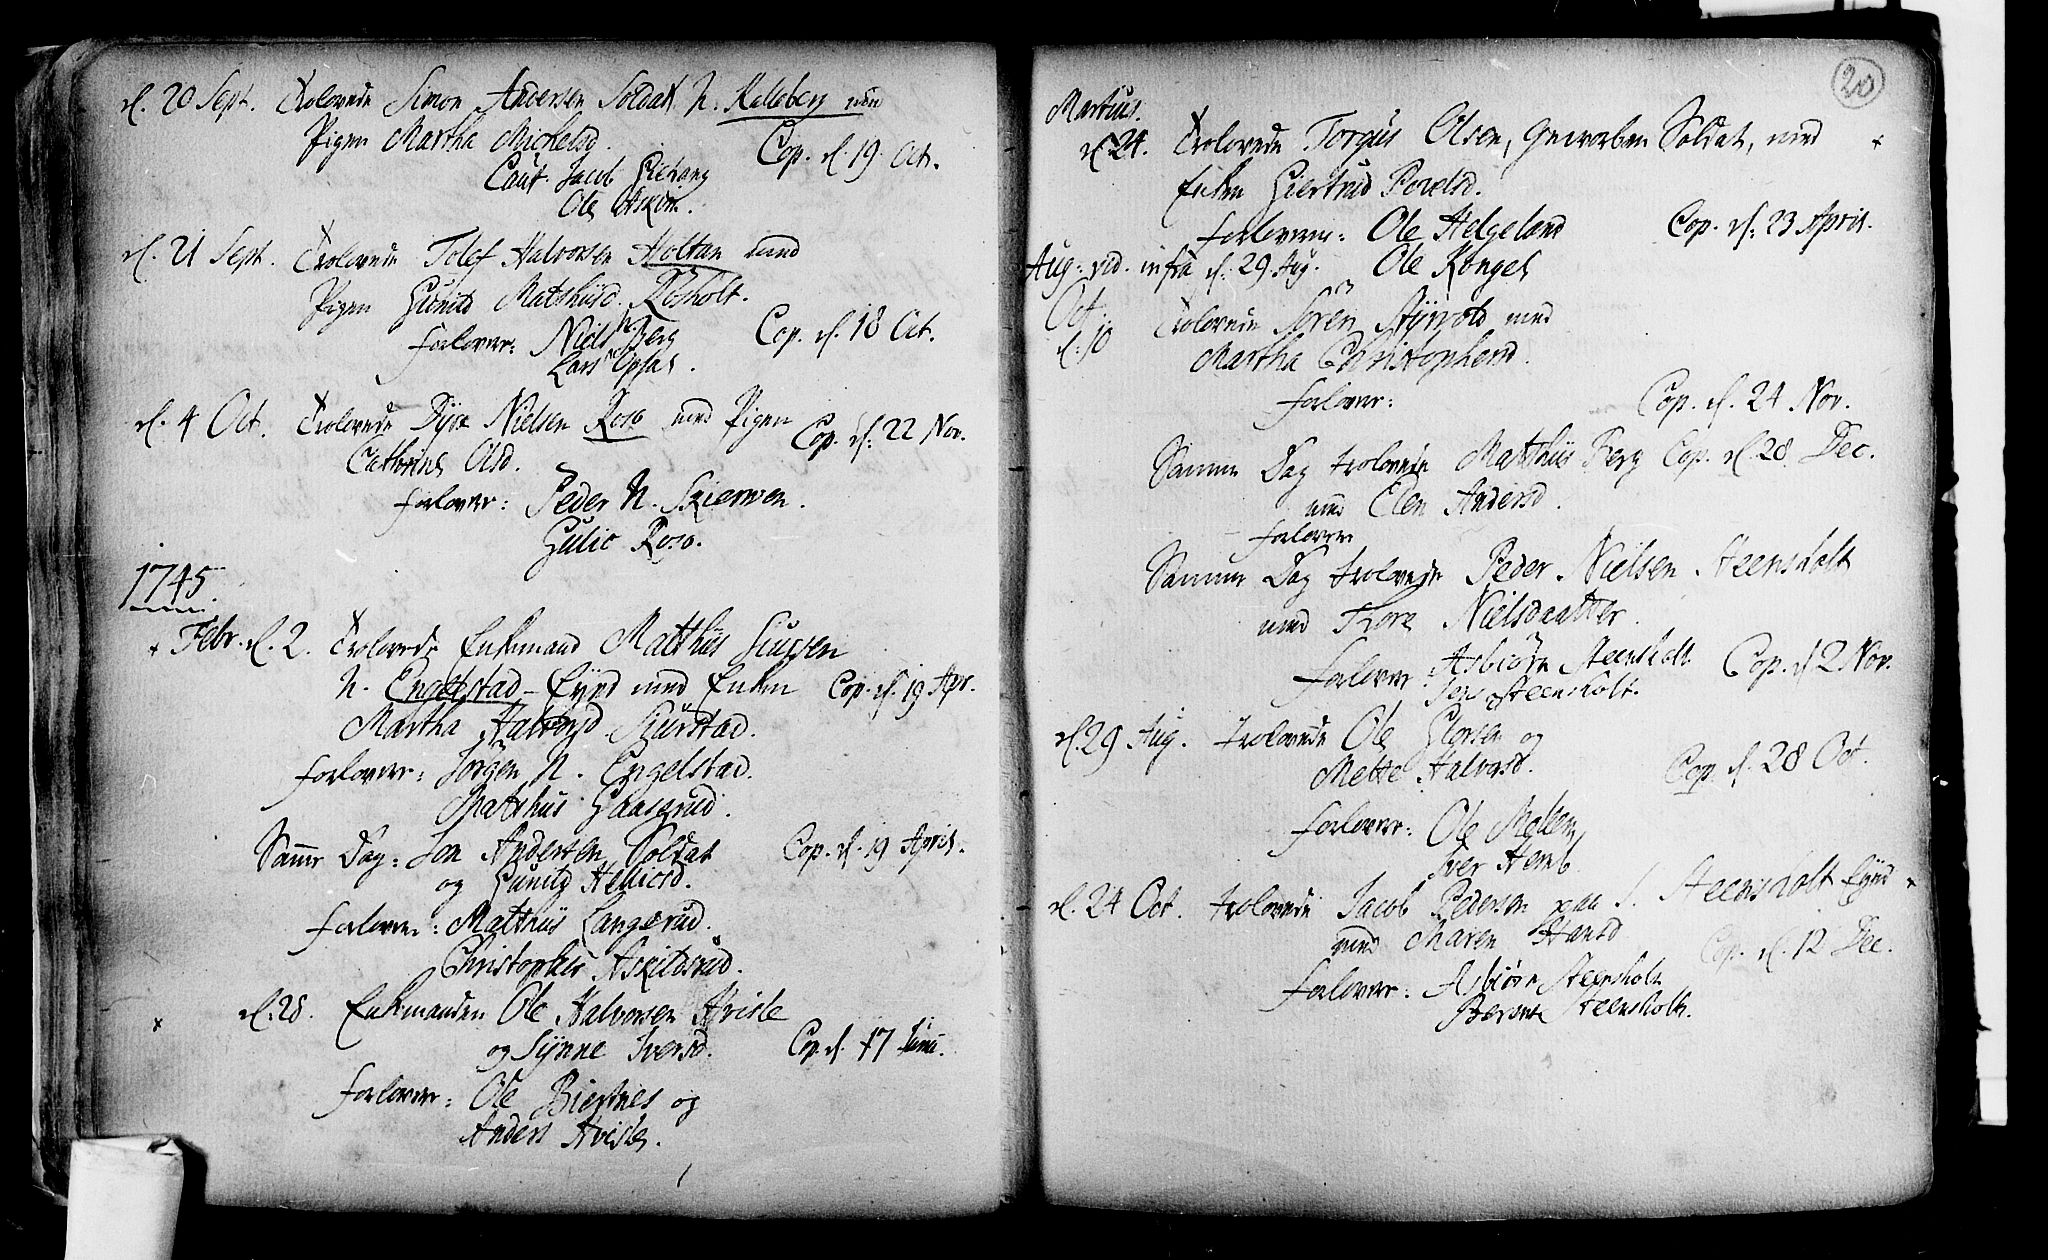 d. 20 Sept. Trolovede Simon Andersen Soldat N. Kalleberg med
Pigen Martha Michelsd.
Cop. d. 19. Oct.
Caut. Jacob
Ole
d. 21 Sept. Trolovede Tolef Halvorsen Holtan med
Pigen Gunild Matshiisd. Rosholt.
forlover: Niels Berg
Cop. d. 18 Oct.
Lars Opsal.
d. 4 Oct. Trolovede Dyre Nielsen Roso med Pigen
Cop. d: 22 Nov.
Cathrine Olsd.
forlover: Peder N. Skierwen.
Gulic Roso.
1745.
Febr. d. 2. Trolovede Enkemand Matthiis
N. Engelstad-Eynd med Enken
Cop. d. 19 Apr.
Martha Halvorsd
forlovere: Jörgen N. Engelstad.
Matshus Gaaserud.
Samme Dag: Jon Andersen Soldat
Cop. d. 19 April.
og Gunild
forlovere: Matthiis Langerud.
Christopher Askildsrud.
d. 28. Enkemanden Ole Halvorsen Hvisle
og Synne Iversd.
Cop. d. 17 Junii.
forlovere: Ole Biertnes og
Anders Hvisle.
20
Martius.
d. 24. Trolovede Torgus Olsen, Geworben Soldat, med
Enken Giertrud Povelsd.
forlovere: Ole Helgeland
Cop. d: 23 April.
Aug: vid. infra d. 29. Aug. Ole Kongel
Oct.
d. 10 Trolovede Sören Styrvold med
Martha Christophersd.
forlover:
Cop. d. 24 Nov.
Samme Dag trolovede Matthiis Berg Cop. d. 28. Dec.
med Elen Andersd.
forlovere
Samme Dag trolovede Peder Nielsen Steensholt
med Thore Nielsdaatter.
forlover: Asbiörn Steensholt
Cop. d. 2 Nov.
Steensholt.
d. 29 Aug. trolovede Ole og
Mette Halvorsd.
Cop. d. 28 Oct.
forlover: Ole Moholm
Iver
d. 24 Oct. trolovede Jacob Pedersen paa S. Steensholt Eynd
med Maren Hansd
Cop. d. 12 Dec.
forlovere: Asbiörn Steensholt
Steensholt.